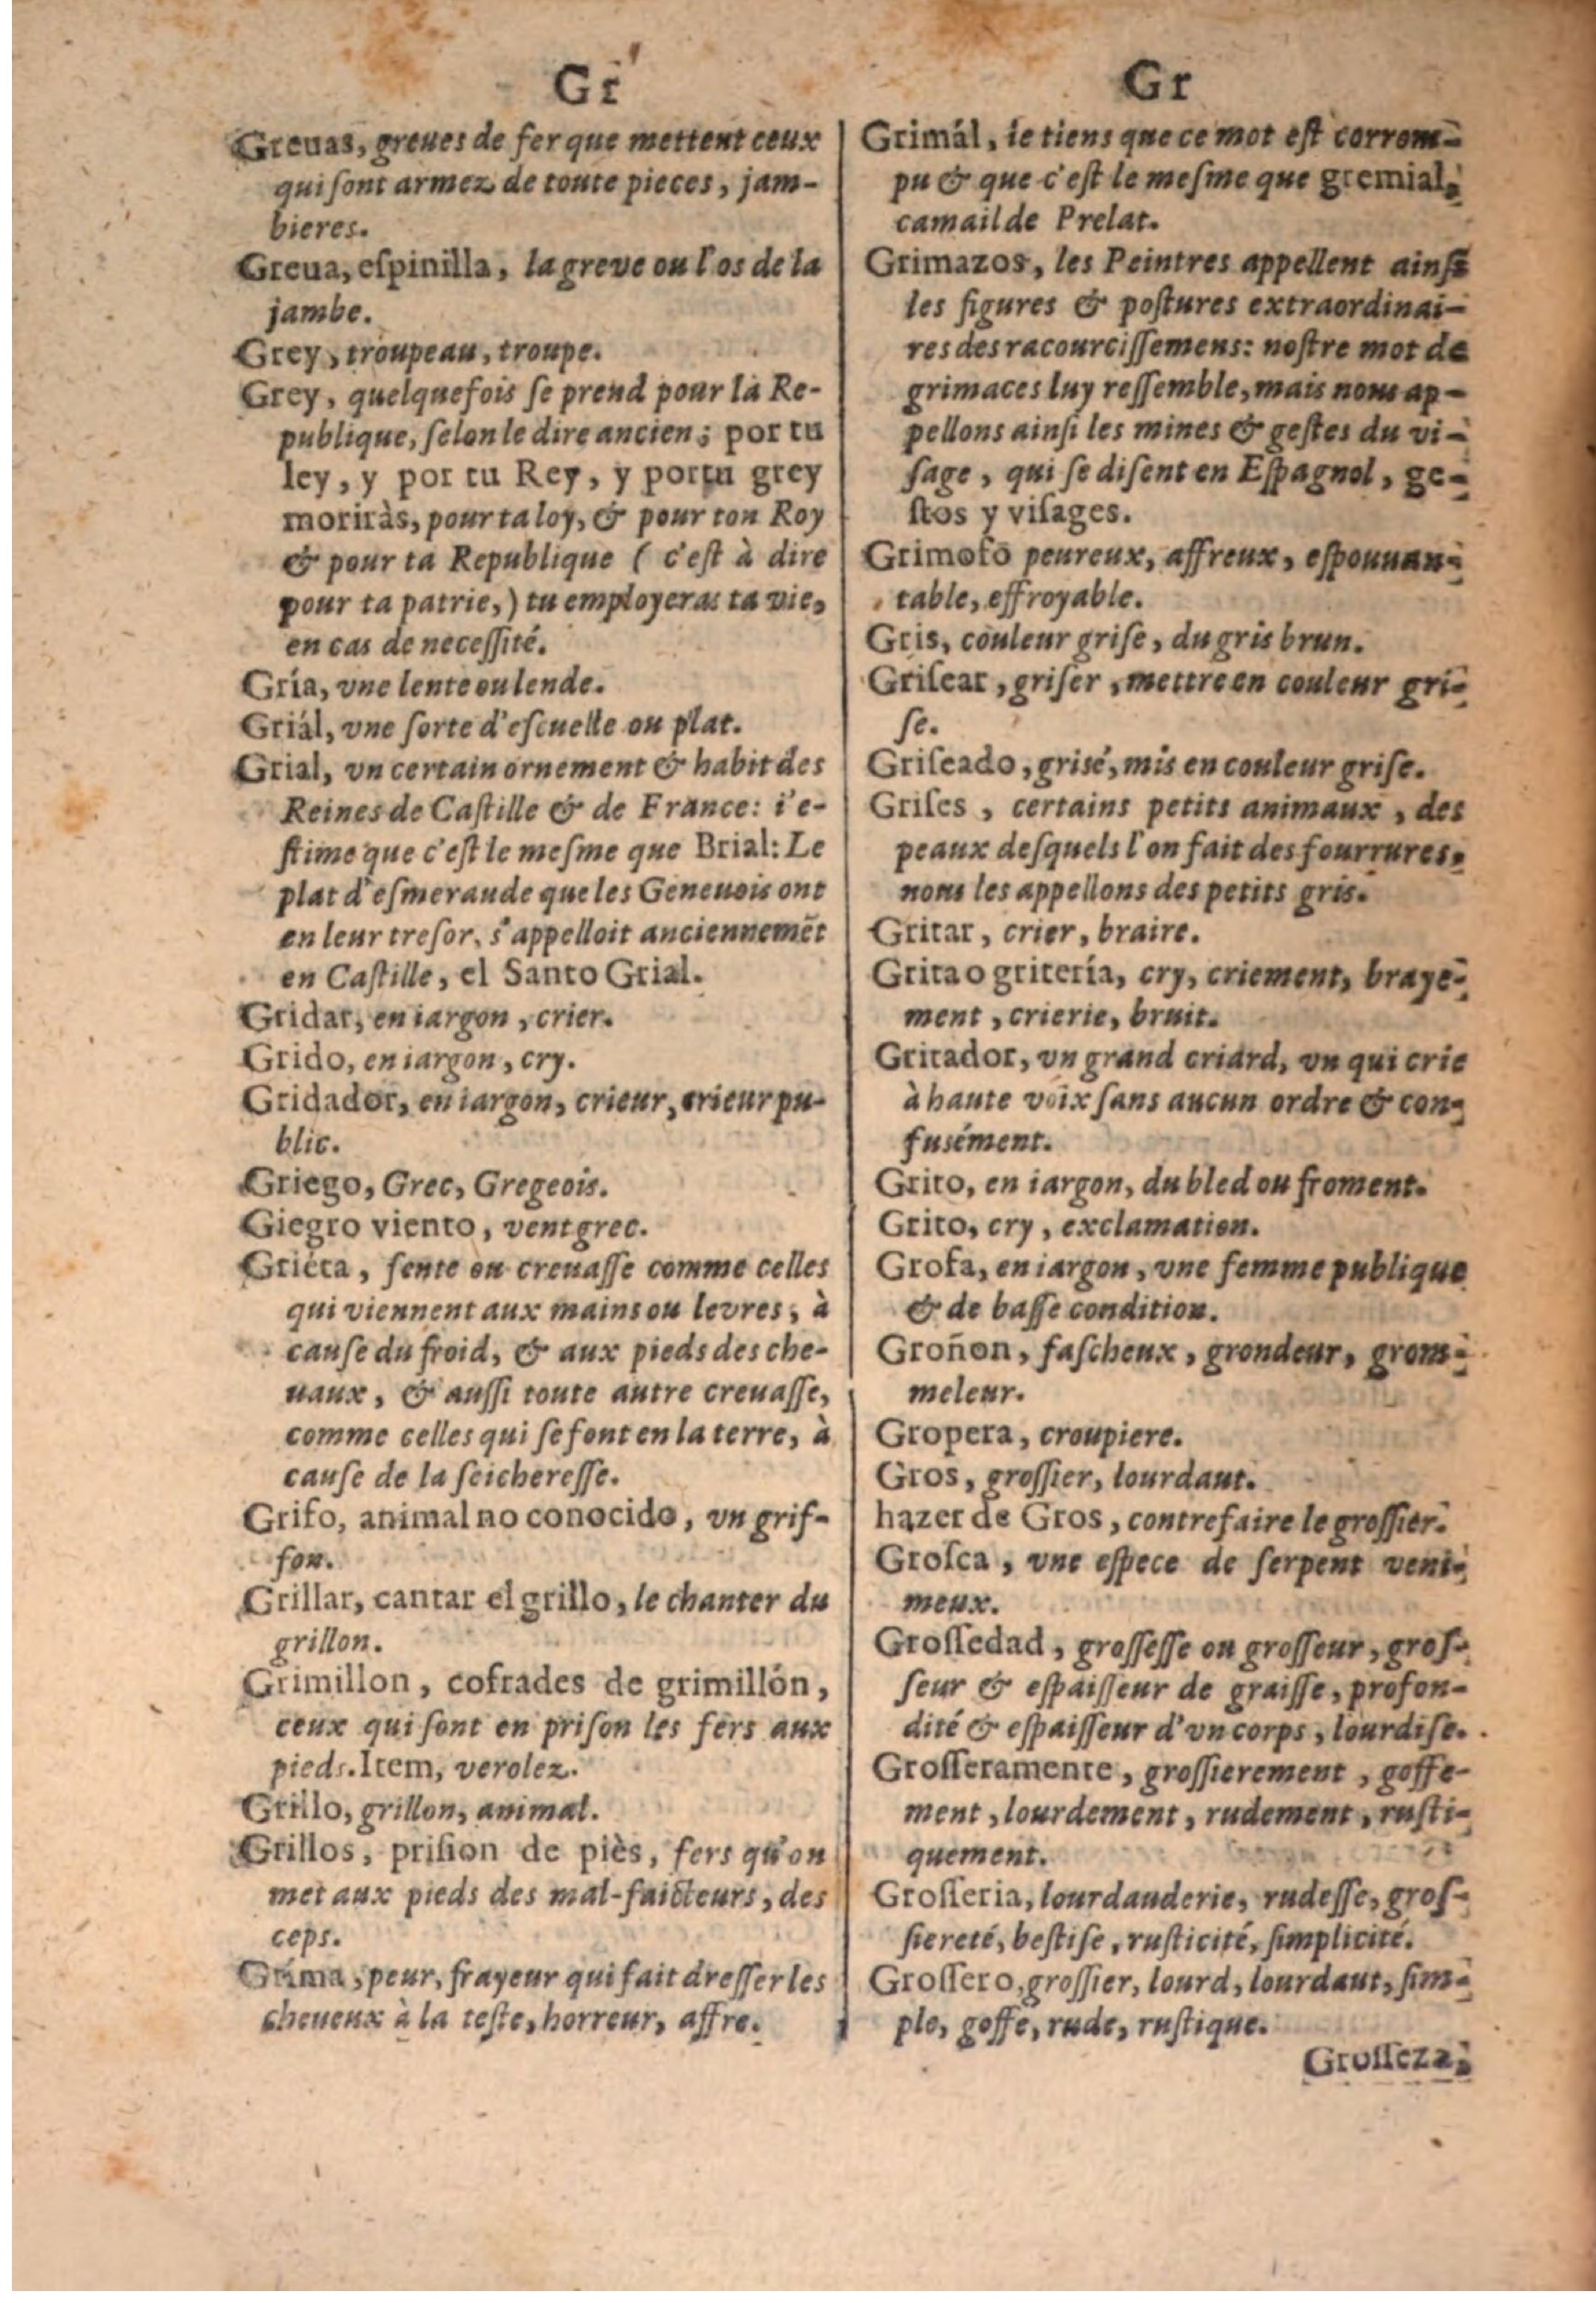 Gr
Greuas, greues de fer que mettent ceux
qui ſont armez de toute pieces, jam-
bieres.
Greua, eſpinilla, la greve ou l'os de la
jambe.
Grey, troupeau, troupe.
Grey, quelquefois ſe prend pour la Re-
publique, ſelon le dire ancien; por tu
ley, y por tu Rey, y por tu grey
moriràs, pour ta loy, & pour ton Roy
& pour ta Republique ( c'eſt à dire
pour ta patrie,) tu employeras ta vie,
en cas de neceſſité.
Gría, vne lente ou lende.
Griál, vne ſorte d'eſcuelle ou plat.
Grial, vn certain ornement & habit des
Reines de Caſtille & de France: i'e-
ſtime que c'eſt le meſme que Brial: Le
plat d'eſmeraude que les Geneuois ont
en leur treſor, s'appelloit anciennemẽt
en Caſtille, el Santo Grial.
Gridar, en iargon, crier.
Grido, en iargon, cry.
Gridador, en iargon, crieur, crieur pu-
blic.
Griego, Grec, Gregeois.
Giegro viento, vent grec.
Griéta, fente ou creuaſſe comme celles
qui viennent aux mains ou levres, à
cauſe du froid, & aux pieds des che-
uaux, & auſſi toute autre creuaſſe,
comme celles qui ſe font en la terre, à
cauſe de la ſeichereſſe.
Grifo, animal no conocido, vn grif-
fon.
Grillar, cantar el grillo, le chanter du
grillon.
Grimillon, cofrades de grimillón,
ceux qui ſont en priſon les fers aux
pieds. Item, verolez.
Grillo, grillon, animal.
Grillos, priſion de piès, fers qu'on
met aux pieds des mal-faicteurs, des
ceps.
Gríma, peur, frayeur qui fait dreſſer les
cheueux à la teſte, horreur, affre.
Gr
Grimál, ie tiens que ce mot eſt corrom-
pu & que c'eſt le meſme que gremial,
camail de Prelat.
Grimazos, les Peintres appellent ainſi
les figures & poſtures extraordinai-
res des racourciſſemens: noſtre mot de
grimaces luy reſſemble, mais nous ap-
pellons ainſi les mines & geſtes du vi-
ſage, qui ſe diſent en Eſpagnol, ge-
ſtos y viſages.
Grimoſo peureux, affreux, eſpouuan-
table, effroyable.
Gris, couleur griſe, du gris brun.
Griſear, griſer, mettre en couleur gri-
ſe.
Griſeado, grisé, mis en couleur griſe.
Griſes, certains petits animaux, des
peaux deſquels l'on fait des fourrures,
nous les appellons des petits gris.
Gritar, crier, braire.
Grita o gritería, cry, criement, braye-
ment, crierie, bruit.
Gritador, vn grand criard, vn qui crie
à haute voix ſans aucun ordre & con-
fusément.
Grito, en iargon, du bled ou froment.
Grito, cry, exclamation.
Grofa, en iargon, vne femme publique
& de baſſe condition.
Groñon, faſcheux, grondeur, grom-
meleur.
Gropera, croupiere.
Gros, groſſier, lourdaut.
hazer de Gros, contrefaire le groſſier.
Groſca, vne eſpece de ſerpent veni-
meux.
Groſſedad, groſſeſſe ou groſſeur, groſ-
ſeur & eſpaiſſeur de graiſſe, profon-
dité & eſpaiſſeur d'vn corps, lourdiſe.
Groſſeramente, groſſierement, goffe-
ment, lourdement, rudement, ruſti-
quement.
Groſſeria, lourdauderie, rudeſſe, groſ-
ſiereté, beſtiſe, ruſticité, ſimplicité.
Groſſero, groſſier, lourd, lourdaut, ſim-
ple, goffe, rude, ruſtique.
Groſſeza,